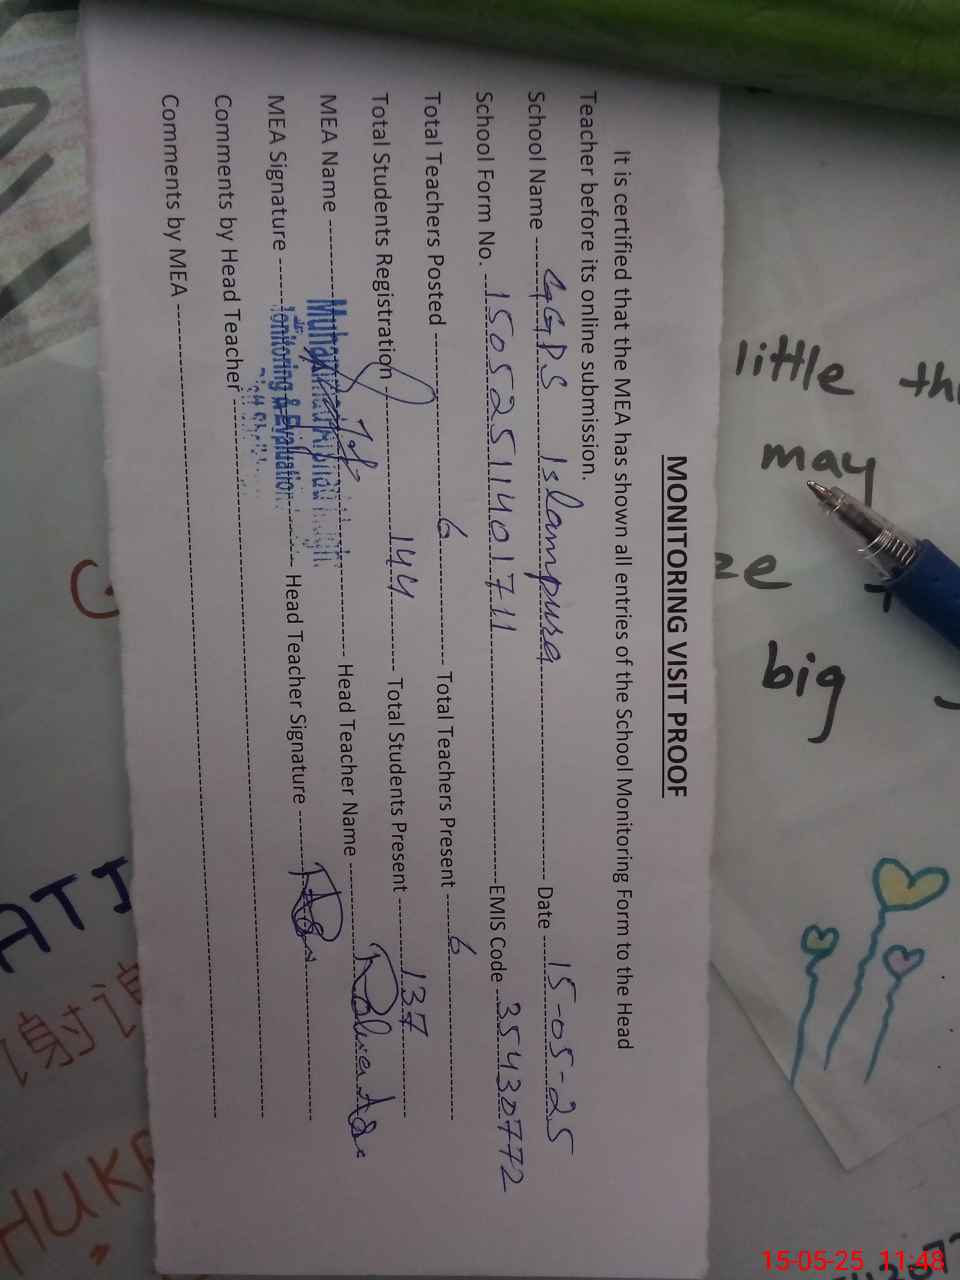 MONITORING VISIT PROOF
It is certified that the MEA has shown all entries of the School Monitoring Form to the Head
Teacher before its online submission.
School Name GGPS Islampura Date 15-05-25
School Form No. 15052511401711 EMIS Code 35430772
Total Teachers Posted 6 Total Teachers Present 6
Total Students Registration 144 Total Students Present 137
MEA Name Head Teacher Name
MEA Signature Head Teacher Signature
Monitoring & Evaluation
Comments by Head Teacher
Comments by MEA
little
may
big
谢谢
15-05-25 11:48